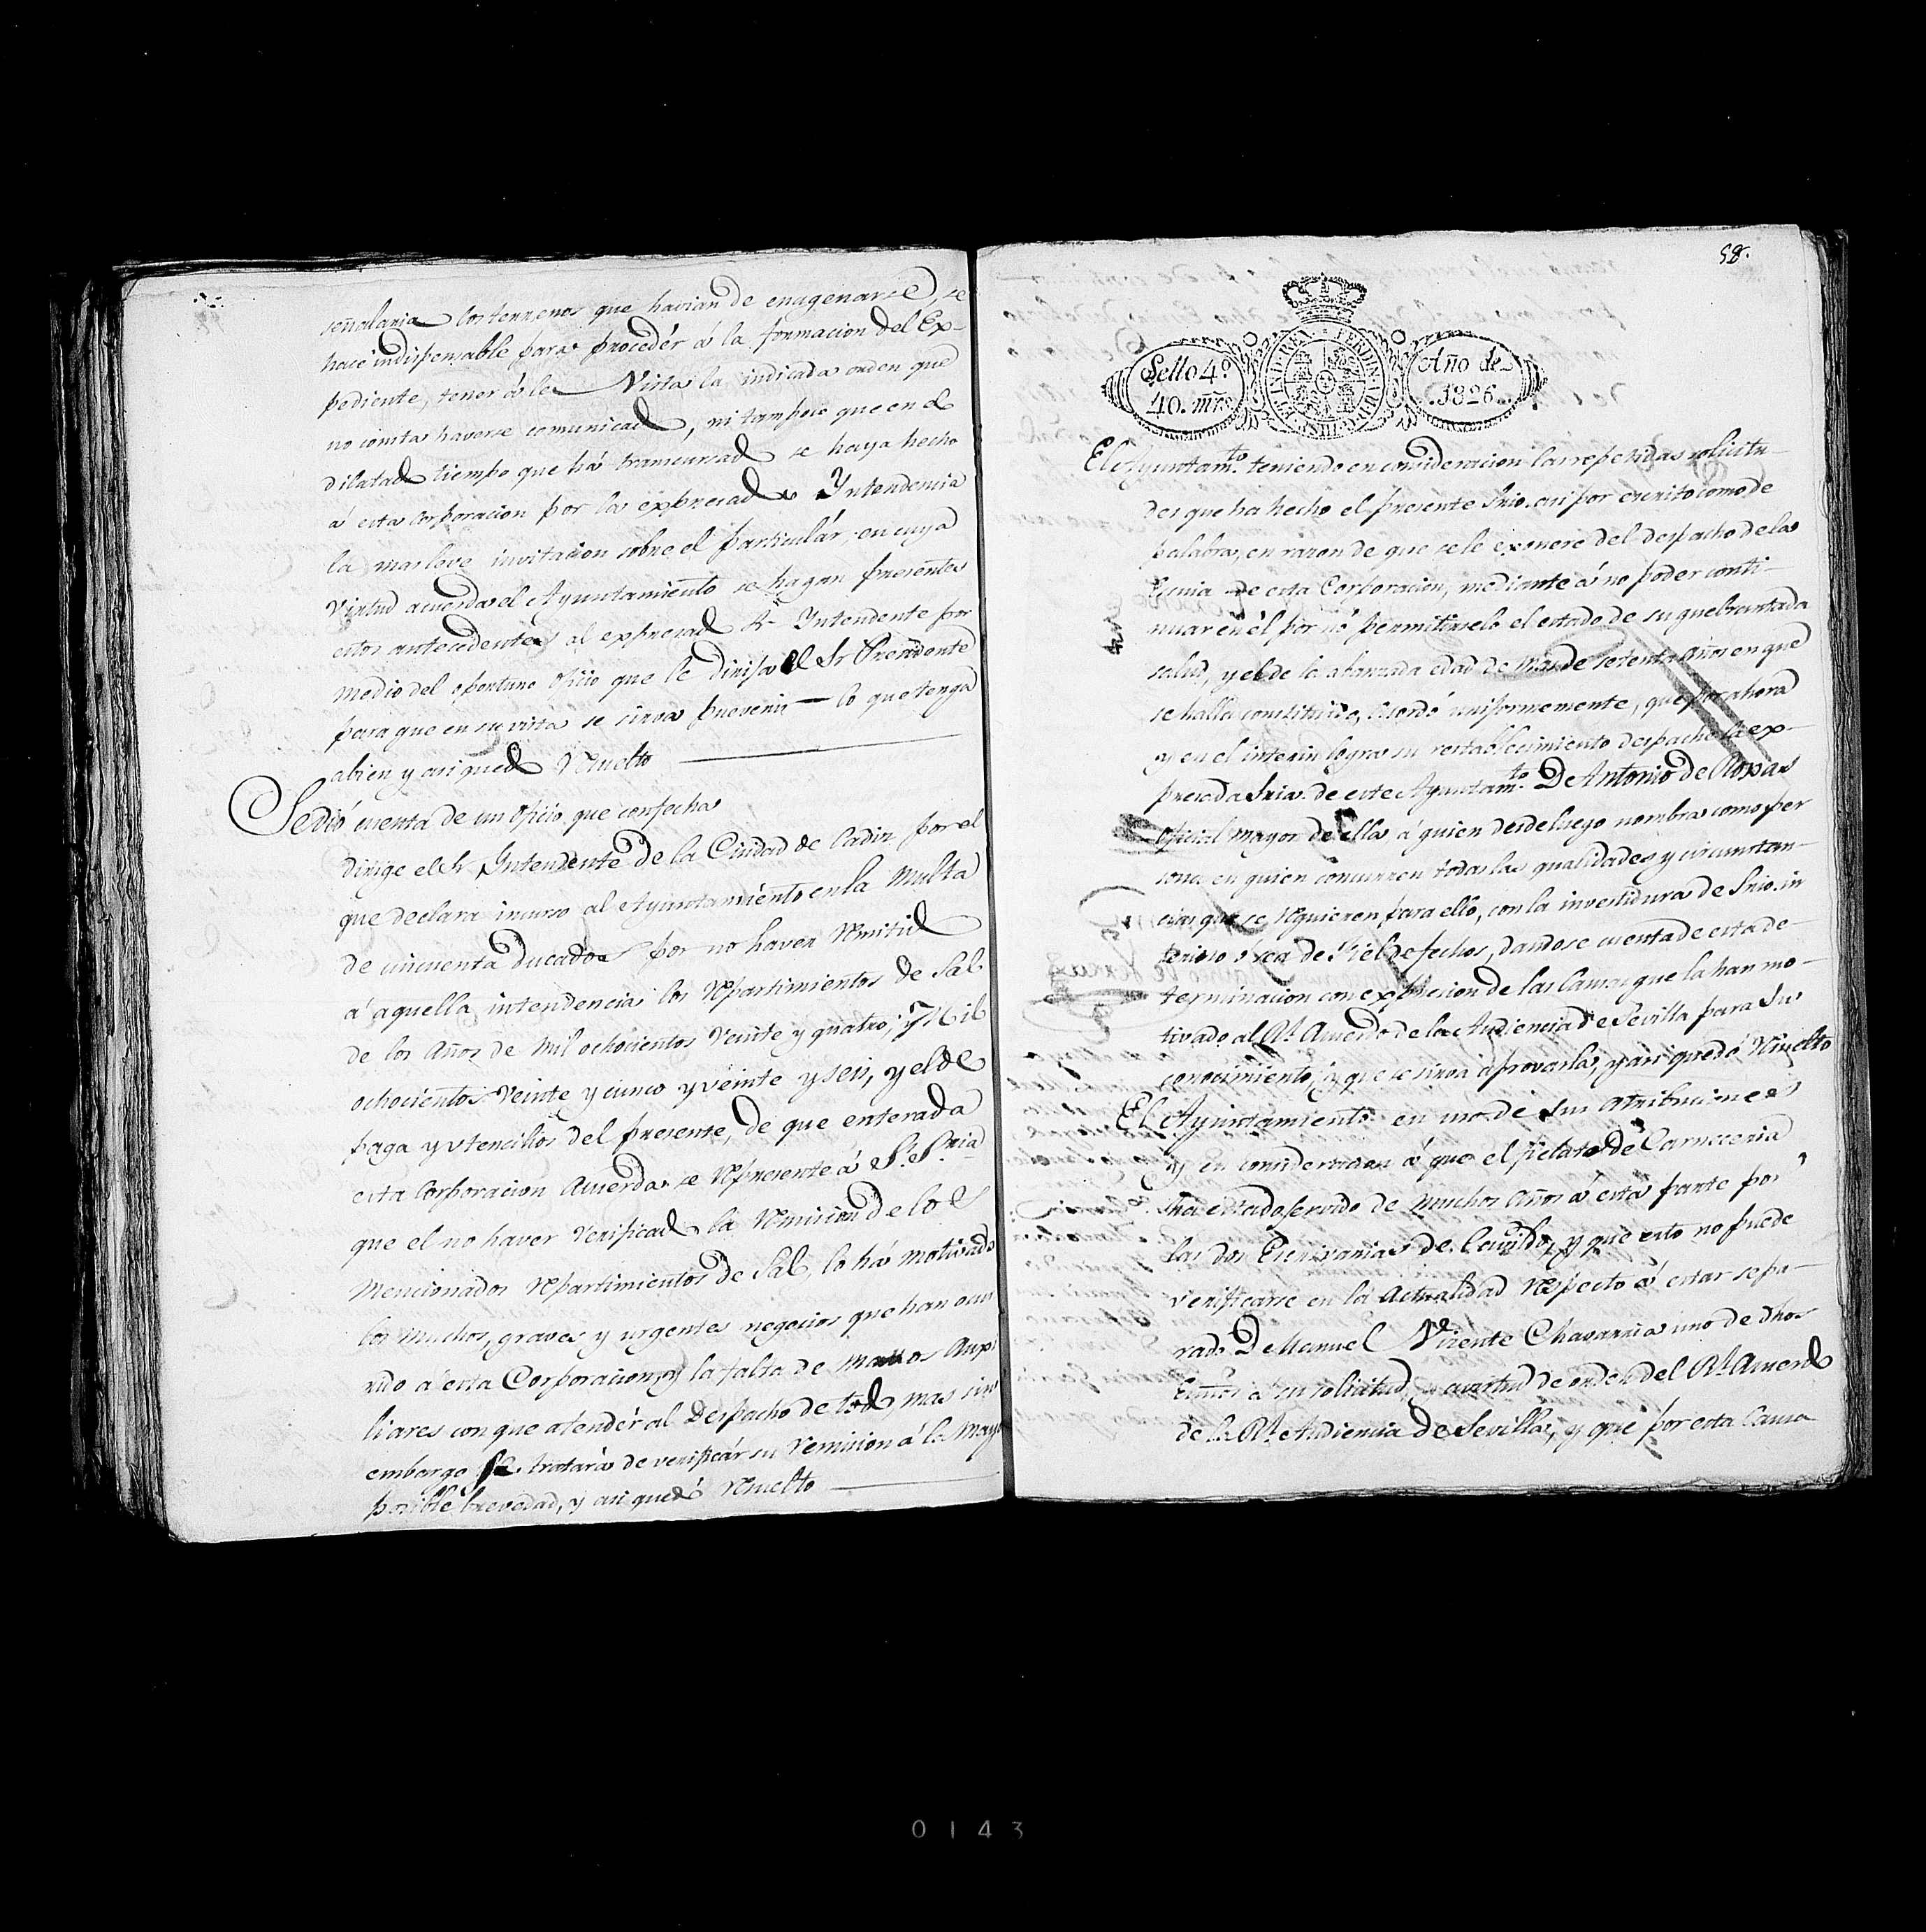 señalaria los terrenos que havian de enagenarse, se
hace indispensable para procedér á la formacion del Ex-
pediente, tener á la Vista la indicada orden que
no consta haverse comunicado, ni tampoco que en el
dilatado tiempo que há transcursado se haya hecho
á esta Corporacion por la expresada Yntendencia
la mas leve invitacion sobre el particulár, en cuya
Virtud acuerda el Ayuntamiento se hagan presentes
estos antecedentes al expresado Sr Yntendente por
medio del oportuno Oficio que le dirija el Sr Presidente
para que en su vista se sirva prevenir lo que tenga
abien y asi quedó Rsuelto
Se dió cuenta de un Oficio que con fecha
dirige el Sr Yntendente de la Ciudad de Cadiz por el
que declara incurso al Ayuntamiento en la Multa
de cincuenta Ducados por no haver Rmitido
á aquella intendencia los Rpartimientos de Sal
de los Años de Mil ochocientos Veinte y quatro, Mil
ochocientos Veinte y cinco y veinte y seis, y el de
paga y vtencilios del presente, de que enterada
esta Corporacion Acuerda se Rpresente á S. S.ria
que el no haver Verificado la Rmision de los
Mencionados Rpartimientos de Sal, lo há motivado
los muchos, graves y urgentes negocios que han ocur
rido á esta Corporacion y la falta de manos Auxi
liares con que atendér al Despacho de todo, mas sin
embargo se tratará de verificár su remision á la mayor
posible brevedad, y asi quedó Rsuelto
58.
Sello 4º
40. mrs
Año de
1826.
El Ayuntam.to teniendo en consideracion las repetidas solicitu-
des que ha hecho el presente Srio. asi por escrito como de
palabra, en razon de que se le exonere del despacho de la
Esnia de esta Corporacion, mediante á no poder conti-
nuar en él por nó permitirselo el estado de su quebrantada
salud, y el de la abanzada edad de mas de setenta años en que
se halla constituido, Acordó uniformemente, que por ahora
y en el interin logra su restablecimiento despache la ex-
presada Sria. de este Ayuntam.to Dn Antonio de Roxas
Oficial mayor de ella, á quien desde luego nombra como per
sona en quien concurren todas las qualidades y circunstan-
cias que se Rquieren para ello, con la investidura de Srio. in
terino ó sea de Fiel de fechos, dandose cuenta de esta de-
terminacion con expresion de las Causas que la han mo-
tivado al Rl. Acuerdo de la Audiencia de Sevilla para su
conocimiento, y que se sirva aprovarla, y asi quedó Rsuelto
El Ayuntamiento en uso de sus atribuciones
y en consideracion á que el fielato de Carneceria
ha estado servido de muchos años á esta parte por
las dos Escrivanias de Cavildo, y que esto no puede
verificarse en la Actualidad Respecto á estar sepa-
rado Dn Manuel Vicente Chavarria uno de dhos
Essnos á su solicitud, a virtud de orden del Rl. Acuerdo
de la Rl. Audiencia de Sevilla, y que por esta Causa
0143